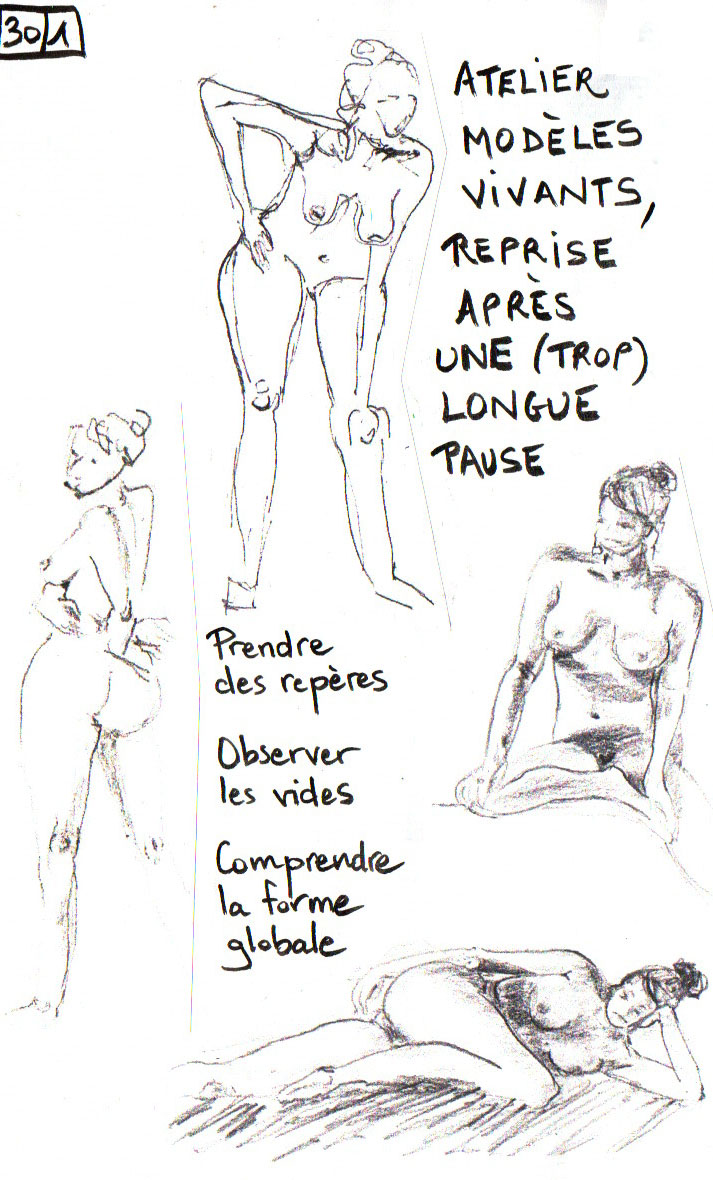 30 1
ATELIER
MODÈLES
ViVANTS,
REPRiSE
APRÈS
UNE (TROP)
LONGUE
PAUSE
Prendre
des repères
Observer
les vides
Comprendre
la forme
globale